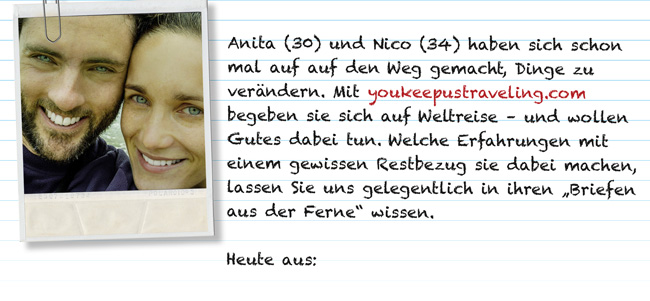 Anita (30) und Nico (34) haben sich schon
mal auf auf den Weg gemacht, Dinge zu
verändern. Mit youkeepustraveling.com
begeben sie sich auf Weltreise – und wollen
Gutes dabei tun. Welche Erfahrungen mit
einem gewissen Restbezug sie dabei machen,
lassen Sie uns gelegentlich in ihren „Briefen
aus der Ferne“ wissen.
Heute aus: